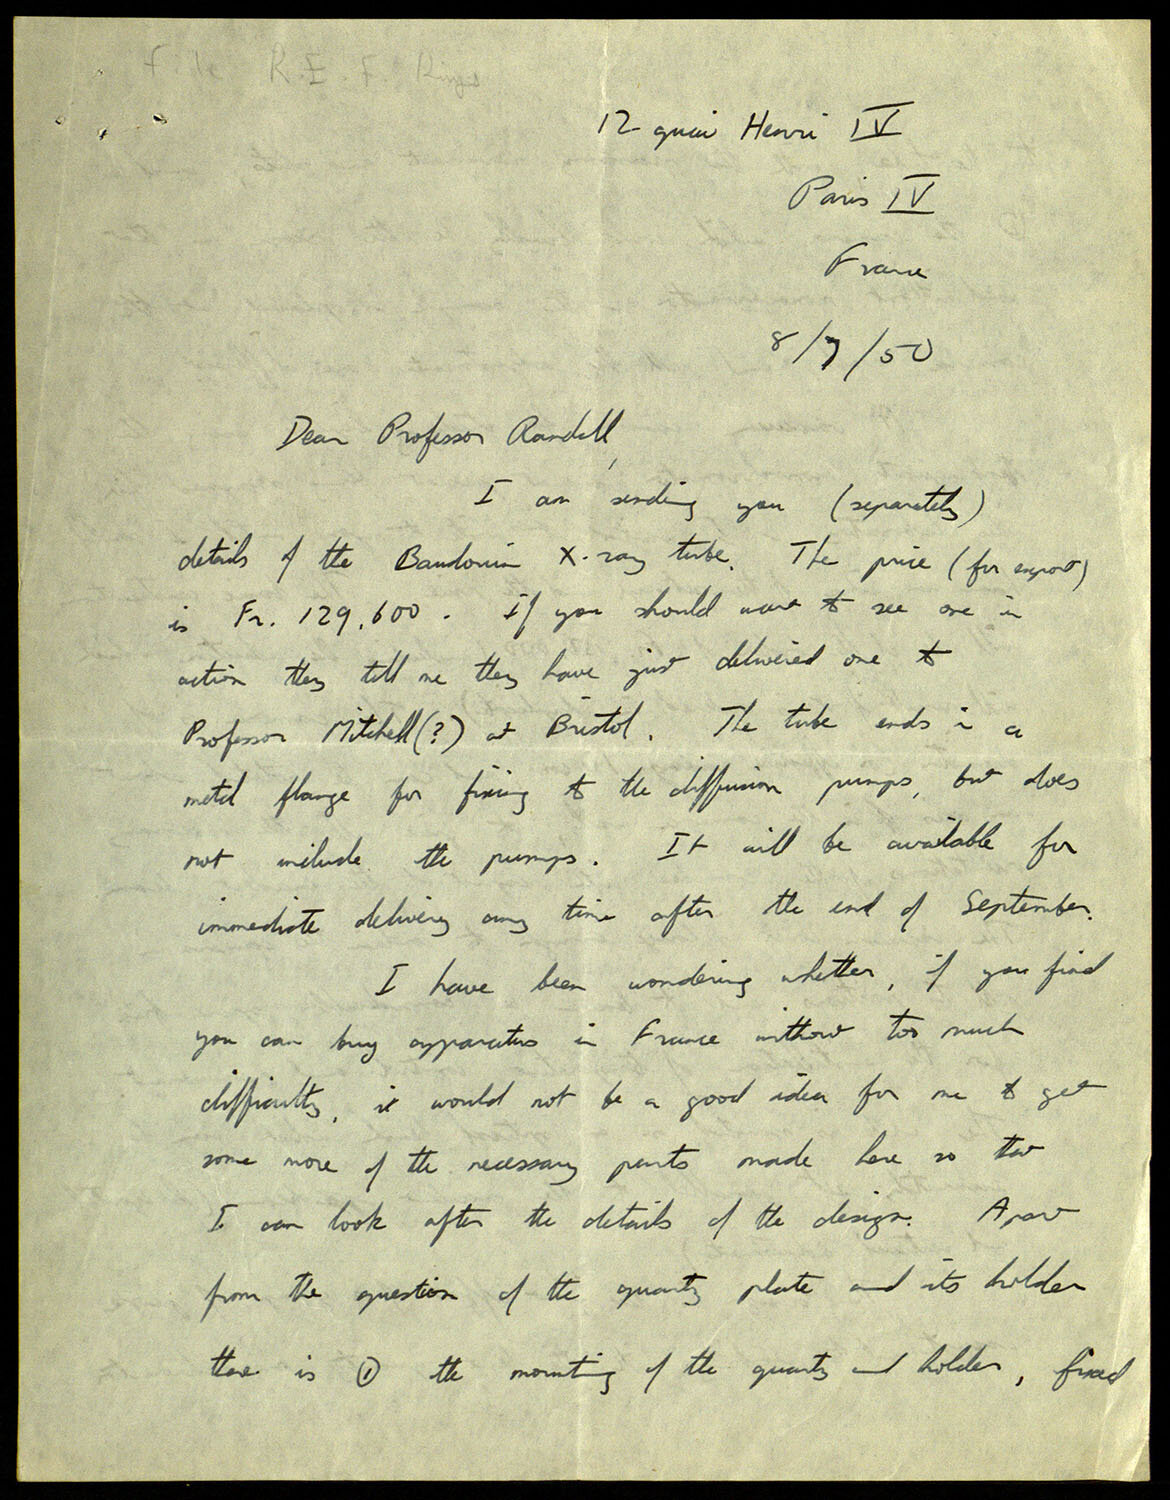 File R.E.F. Rings
12 quai Henri IV
Paris IV
France
8/7/50
Dear Professor Randall,
I am sending you (separately)
details of the Baudouin X-ray tube. The price (for export)
is Fr. 129,600. If you should want to see one in
action they tell me they have just delivered one to
Professor Mitchell(?) at Bristol. The tube ends in a
metal flange for fixing to the diffusion pumps, but does
not include the pumps. It will be available for
immediate delivery any time after the end of September.
I have been wondering whether, if you find
you can buy apparatus in France without too much
difficulty, it would not be a good idea for me to get
some more of the necessary parts made here so that
I can look after the details of the design. Apart
from the question of the quartz plate and its holder
there is ① the mounting of the quartz and holder, fixed